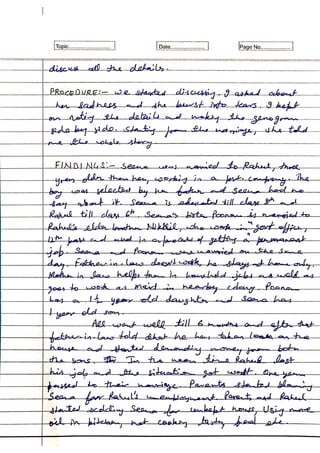 Topic
Date
Page No.
discuss all the details.
PROCEDURE:- we started discussing. I asked about
her sadness and she burst into tears. I kept
on noting the details and making the genogram
side by side. Starting from the marriage, she told
me the whole story.
FINDINGS:- Seema was married to Rahul, three
years older than her, working in a pvt. company. The
boy was selected by her father and Seema had no
say about it. Seema is educated till class 8th and
Rahul till class 6th. Seema's sister Poonam is married to
Rahul's elder brother Nikhil, who work in govt office,
12th pass and in a process of getting a permanent
job. Seema and Poonam were married on the same
day. Father in law doesn't work, he stays at home only.
Mother in law helps them in household jobs as well as
goes to work as maid in nearby colony. Poonam
has a 1½ year old daughter and Seema has
1 year old son.
All went well till 6 months and after that
father-in-law told that he has taken loan on the
house and started demanding money from both
the sons. In the mean time Rahul lost
his job and the situation got worst. One year
passed to their marriage. Parents started blaming
Seema for Rahul's unemployment. Parents and Rahul
started scolding Seema for unkept house, using more
oil in kitchen, not cooking tasty food etc.